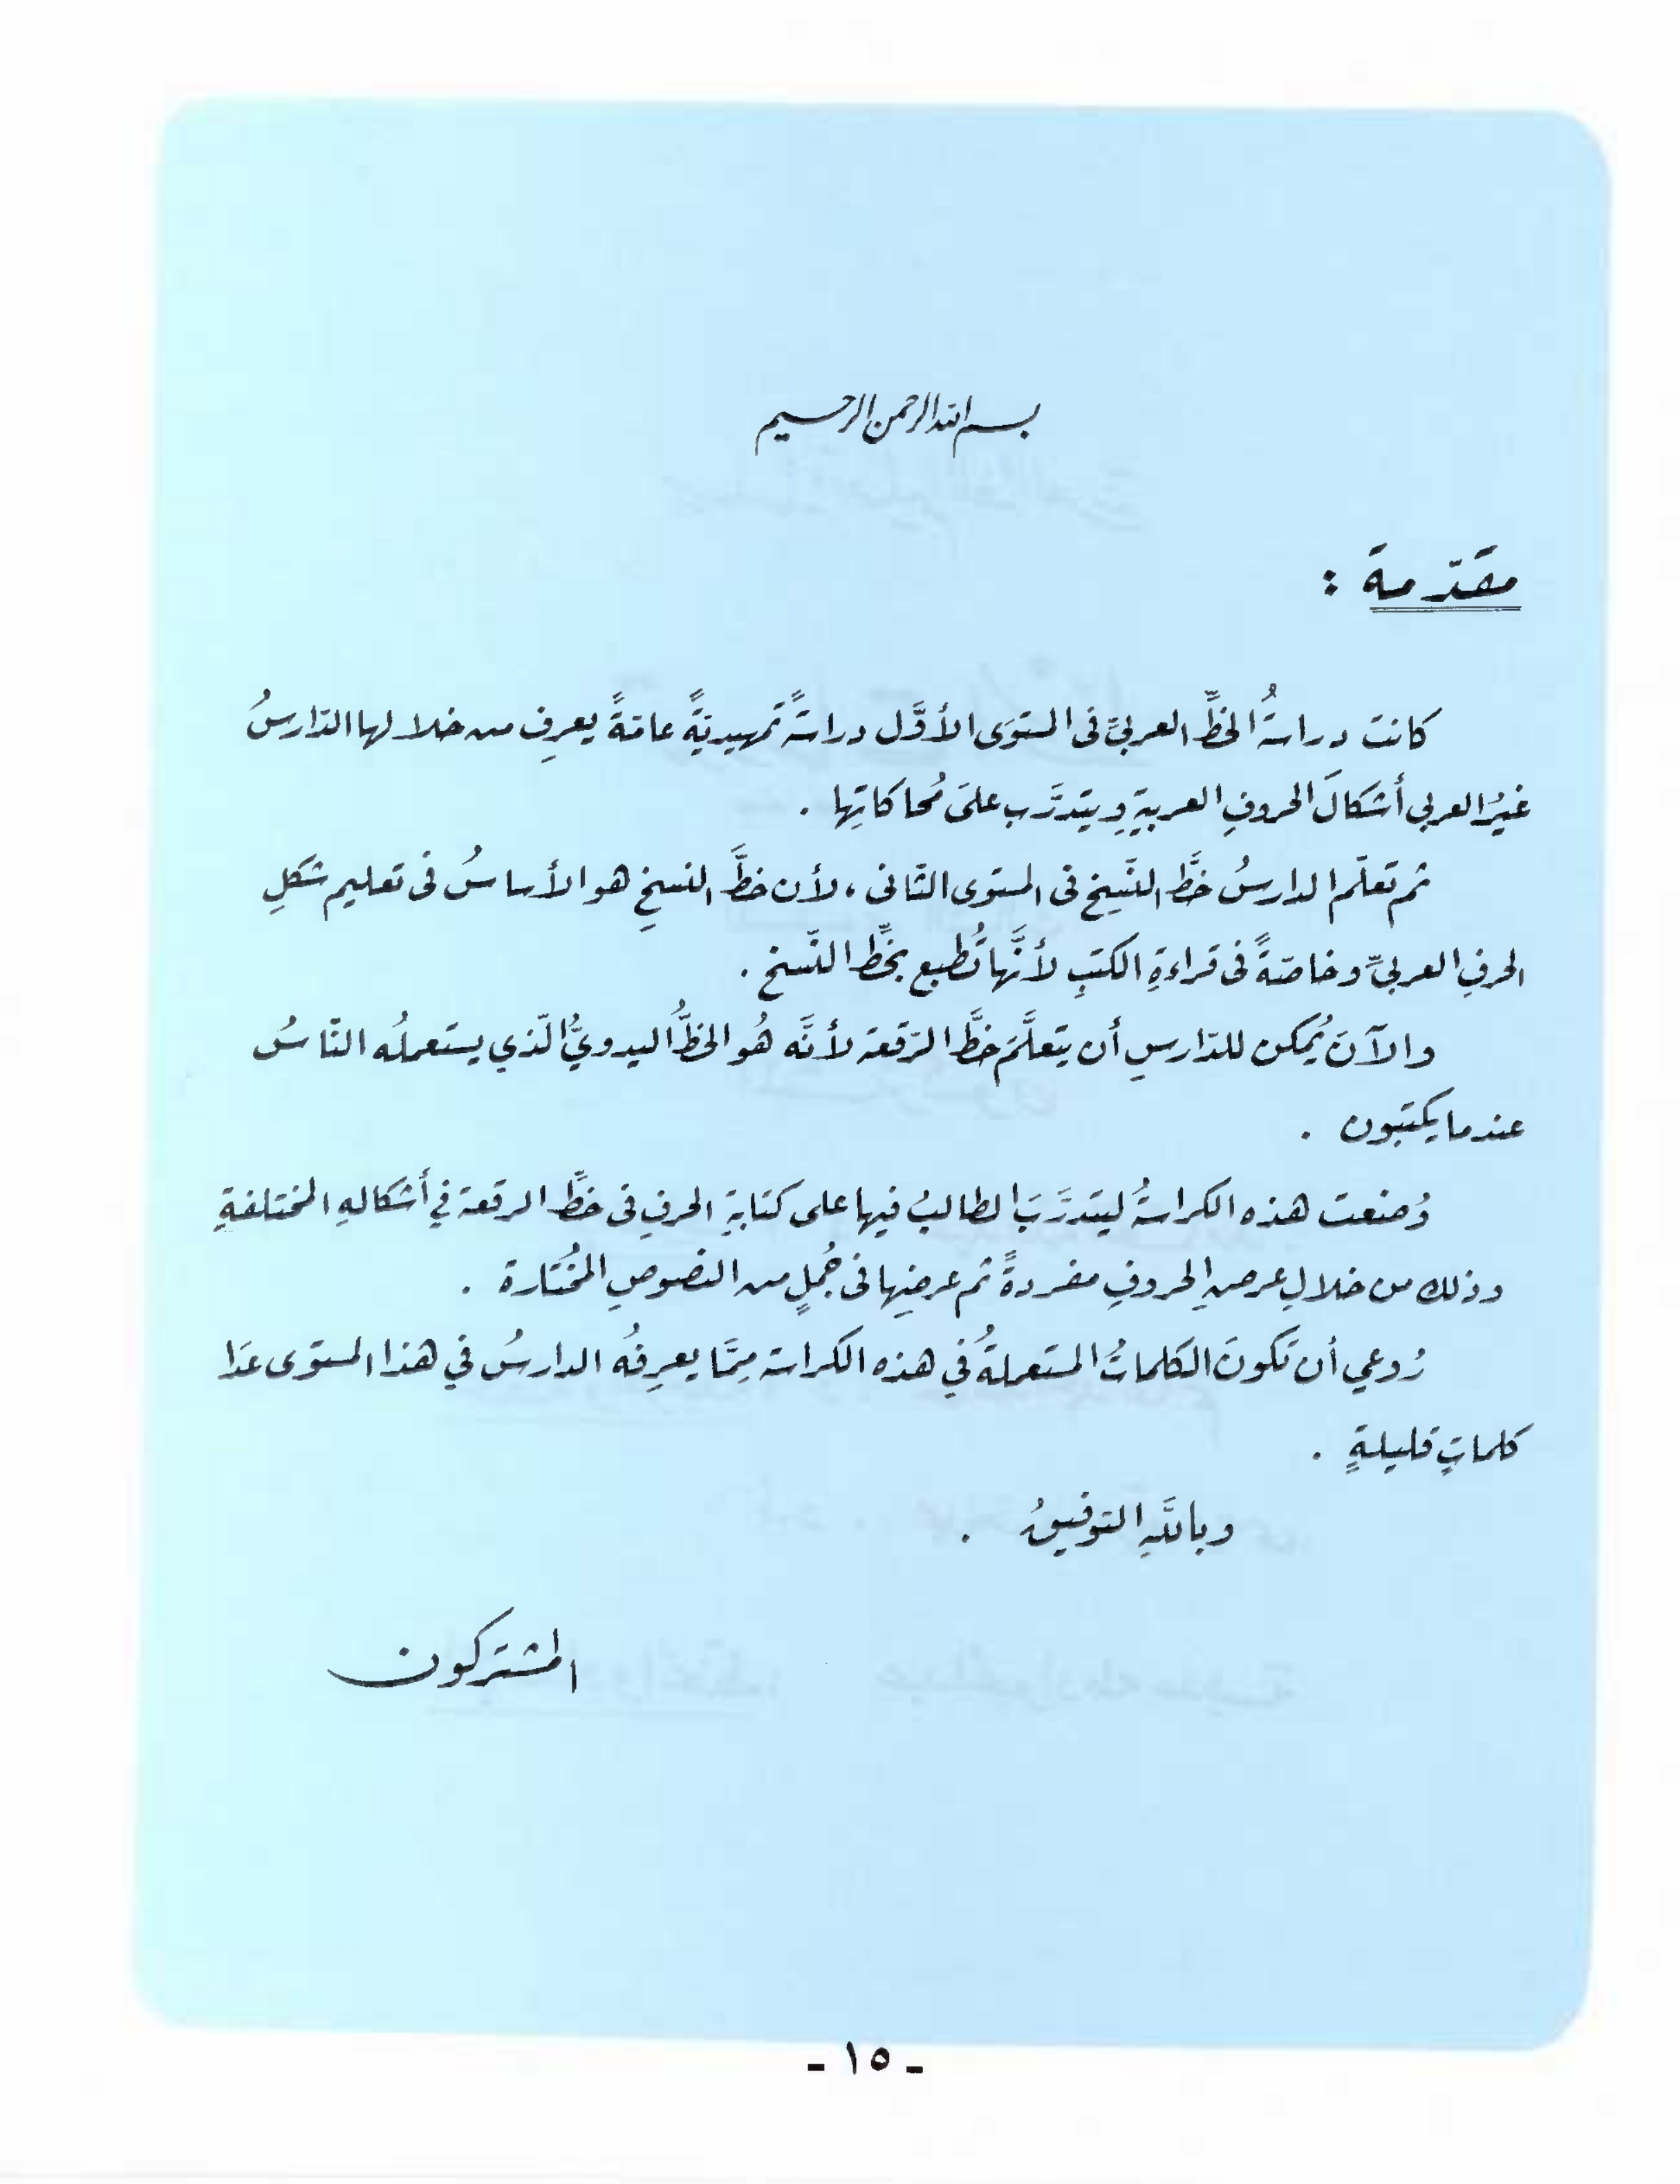 بسم الله الرحمن الرحيم
مقدّمة :
كانت دراسةُ الخطِّ العربيِّ فى المستوَى الأوَّل دراسةً تمهيديّةً عامّةً يعرف من خلالها الدّارسُ
غيرُ العربي أشكالَ الحروفِ العربيةِ ويتدرَّب علىَ مُحاكاتِها .
ثم تعلّم الدارسُ خطَّ النّسخِ فى المستوى الثّانى ، لأن خطَّ النسخِ هو الأساسُ فى تعليم شكلِ
الحرفِ العربيِّ وخاصّةً فى قراءةِ الكتبِ لأنَّها تُطبع بخطِّ النّسخ .
والآنَ يُمكن للدّارسِ أن يتعلَّمَ خطَّ الرّقعة لأنَّه هُو الخطُّ اليدويُّ الّذي يستعملُه النّاسُ
عندما يكتبون .
وُضعت هذه الكراسةُ ليتدرَّبَ الطالبُ فيها على كتابةِ الحرفِ فى خطِّ الرقعة في أشكالهِ المختلفةِ
وذلك من خلالِ عرضِ الحروفِ مفردةً ثم عرضِها فى جُملٍ من النصوصِ المُختارة .
رُوعي أن تكونَ الكلماتُ المستعملةُ في هذه الكراسة مِمَّا يعرِفُه الدارسُ في هذا المستوى عدَا
كلماتٍ قليلةٍ .
وباللَّهِ التوفيقُ .
المشتركون
- ١٥ -